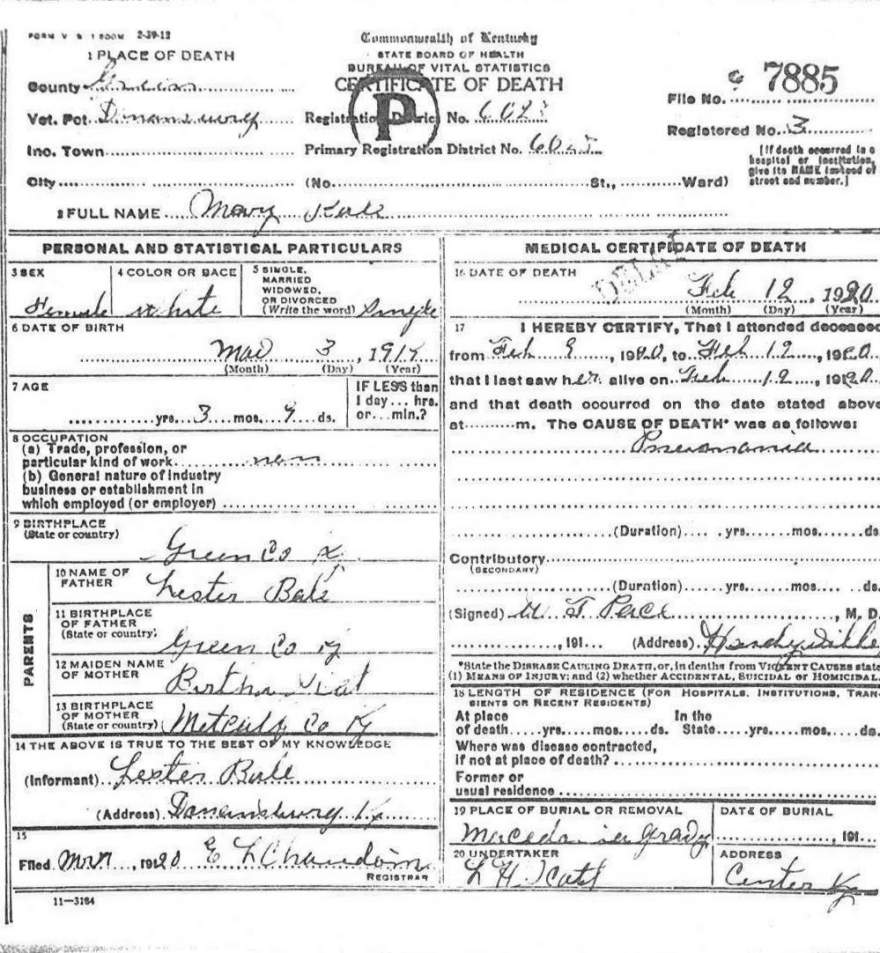 FORM V. S. 1 500M 2-39-12
Commonwealth of Kentucky
STATE BOARD OF HEALTH
BUREAU OF VITAL STATISTICS
CERTIFICATE OF DEATH
P
1 PLACE OF DEATH
County
Vot. Pct.
Inc. Town
City
Registration District No.
Primary Registration District No.
(No. St., Ward)
File No. 7885
Registered No. 3
[If death occurred in a hospital or institution, give its NAME instead of street and number.]
2 FULL NAME Mary
PERSONAL AND STATISTICAL PARTICULARS
3 SEX
Female
4 COLOR OR RACE
White
5 SINGLE, MARRIED WIDOWED, OR DIVORCED (Write the word)
6 DATE OF BIRTH
3, 191
(Month) (Day) (Year)
7 AGE
yrs. 3 mos. 9 ds.
IF LESS than 1 day... hrs. or... min.?
8 OCCUPATION
(a) Trade, profession, or
particular kind of work
(b) General nature of industry
business or establishment in
which employed (or employer)
9 BIRTHPLACE
(State or country)
Green Co
PARENTS
10 NAME OF FATHER
Lester Bale
11 BIRTHPLACE OF FATHER
(State or country)
Green Co Ky
12 MAIDEN NAME OF MOTHER
Bertha
13 BIRTHPLACE OF MOTHER
(State or country) Metcalf Co Ky
14 THE ABOVE IS TRUE TO THE BEST OF MY KNOWLEDGE
(Informant) Lester Bale
(Address) Ky
15
Filed 1920 E L
REGISTRAR
11—3184
MEDICAL CERTIFICATE OF DEATH
16 DATE OF DEATH
Feb 12, 1920
(Month) (Day) (Year)
17 I HEREBY CERTIFY, That I attended deceased
from Feb 9, 1920, to Feb 12, 1920
that I last saw her alive on Feb 12, 1920
and that death occurred on the date stated above
at m. The CAUSE OF DEATH* was as follows:
(Duration) yrs. mos. ds.
Contributory
(SECONDARY)
(Duration) yrs. mos. ds.
(Signed) M. D.
, 191... (Address)
*State the DISEASE CAUSING DEATH, or, in deaths from VIOLENT CAUSES state
(1) MEANS OF INJURY; and (2) whether ACCIDENTAL, SUICIDAL or HOMICIDAL.
18 LENGTH OF RESIDENCE (FOR HOSPITALS, INSTITUTIONS, TRANSIENTS OR RECENT RESIDENTS)
At place of death yrs. mos. ds.
In the State yrs. mos. ds.
Where was disease contracted,
if not at place of death?
Former or
usual residence
19 PLACE OF BURIAL OR REMOVAL
DATE OF BURIAL
, 191...
20 UNDERTAKER
L H
ADDRESS
Center Ky